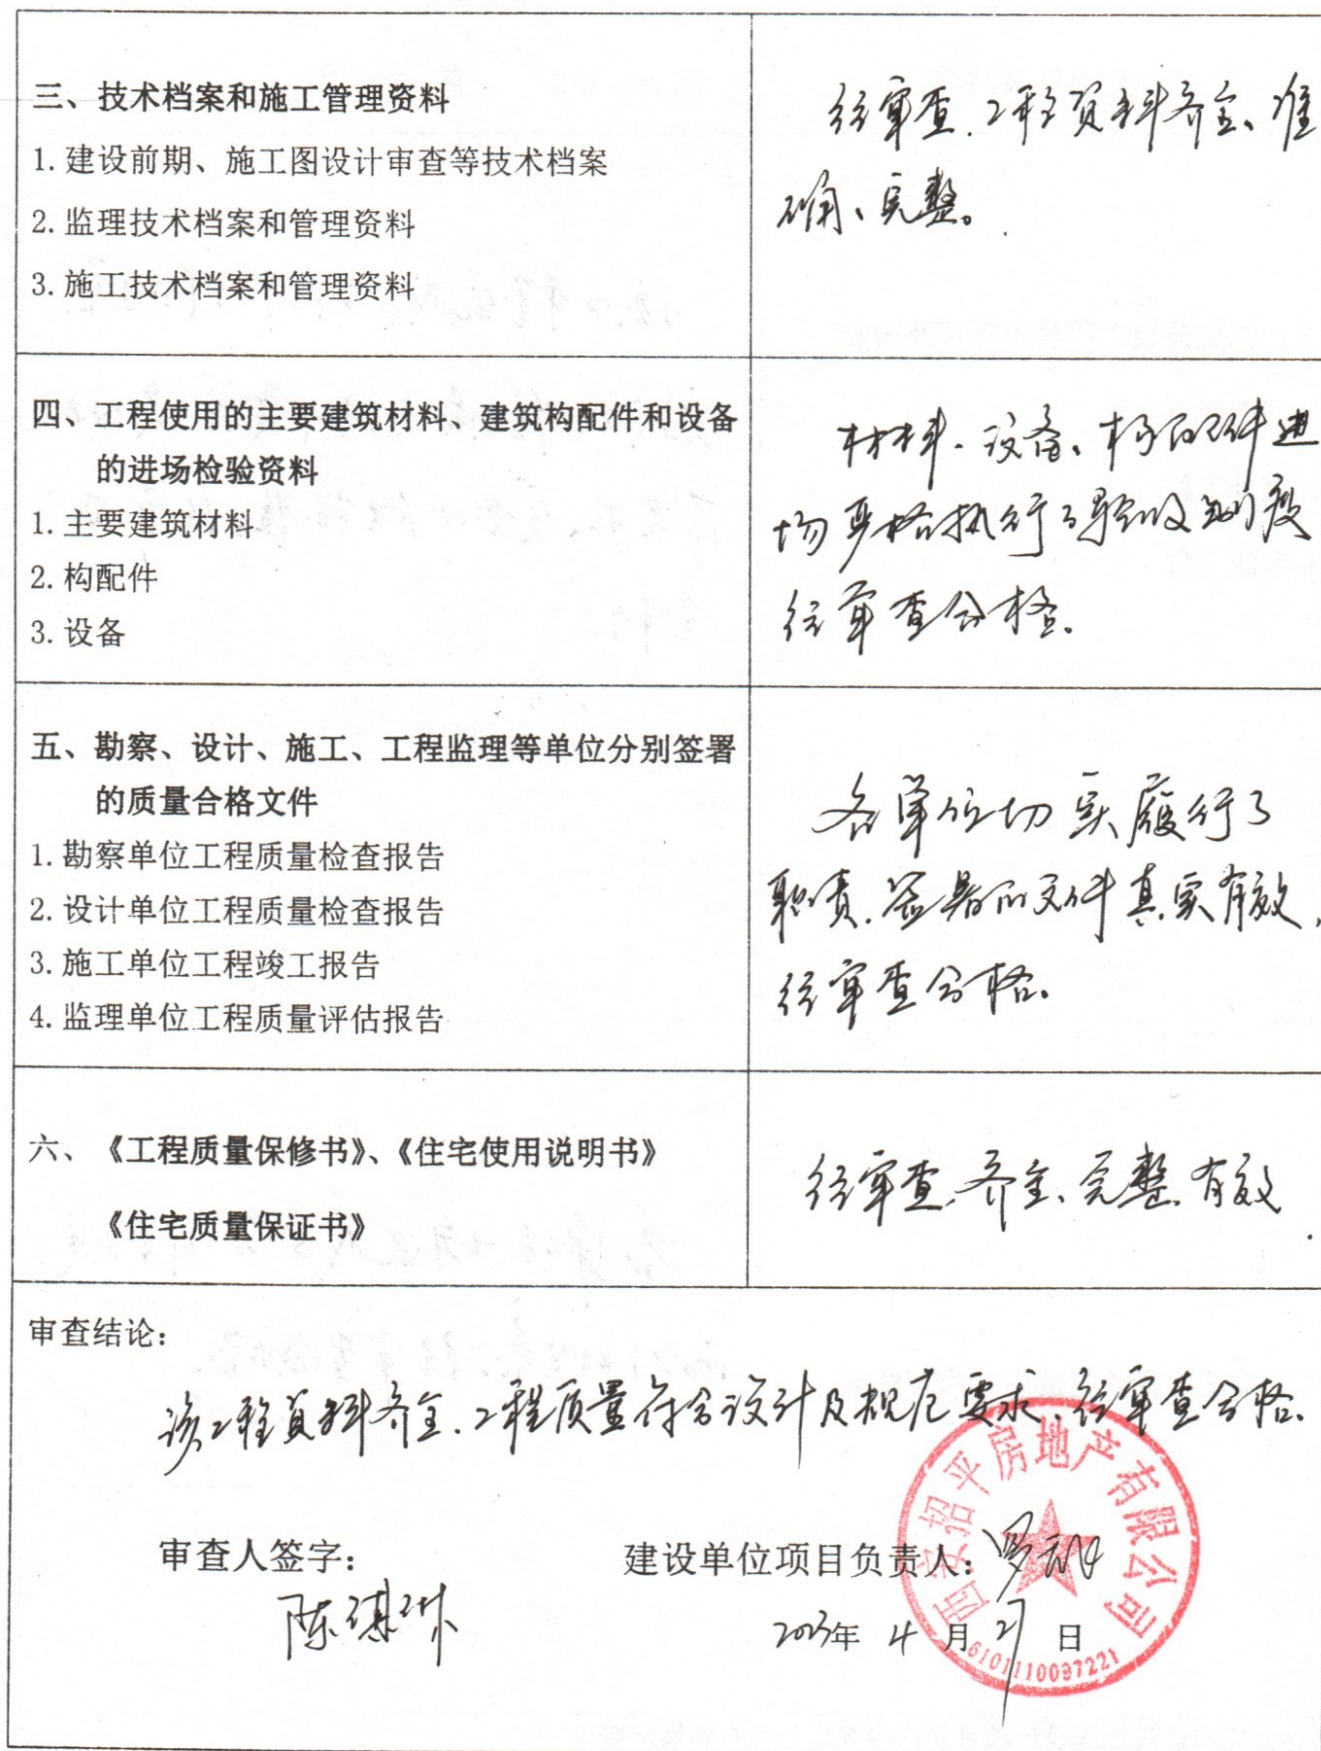 三、技术档案和施工管理资料
1.建设前期、施工图设计审查等技术档案
2.监理技术档案和管理资料
3.施工技术档案和管理资料
经审查.工程资料齐全、准
确、完整。
四、工程使用的主要建筑材料、建筑构配件和设备
的进场检验资料
1.主要建筑材料
2.构配件
3.设备
材料、设备、构配件进
场严格执行了验收制度
经审查合格.
五、勘察、设计、施工、工程监理等单位分别签署
的质量合格文件
1.勘察单位工程质量检查报告
2.设计单位工程质量检查报告
3.施工单位工程竣工报告
4.监理单位工程质量评估报告
各单位切实履行了
职责.签署的文件真实有效,
经审查合格.
六、《工程质量保修书》、《住宅使用说明书》
《住宅质量保证书》
经审查.齐全、完整.有效.
审查结论:
该工程资料齐全.工程质量符合设计及规范要求.经审查合格.
审查人签字:
陈琪琳
建设单位项目负责人:罗
年 4 月 日
西安招平房地产有限公司
6101110037221